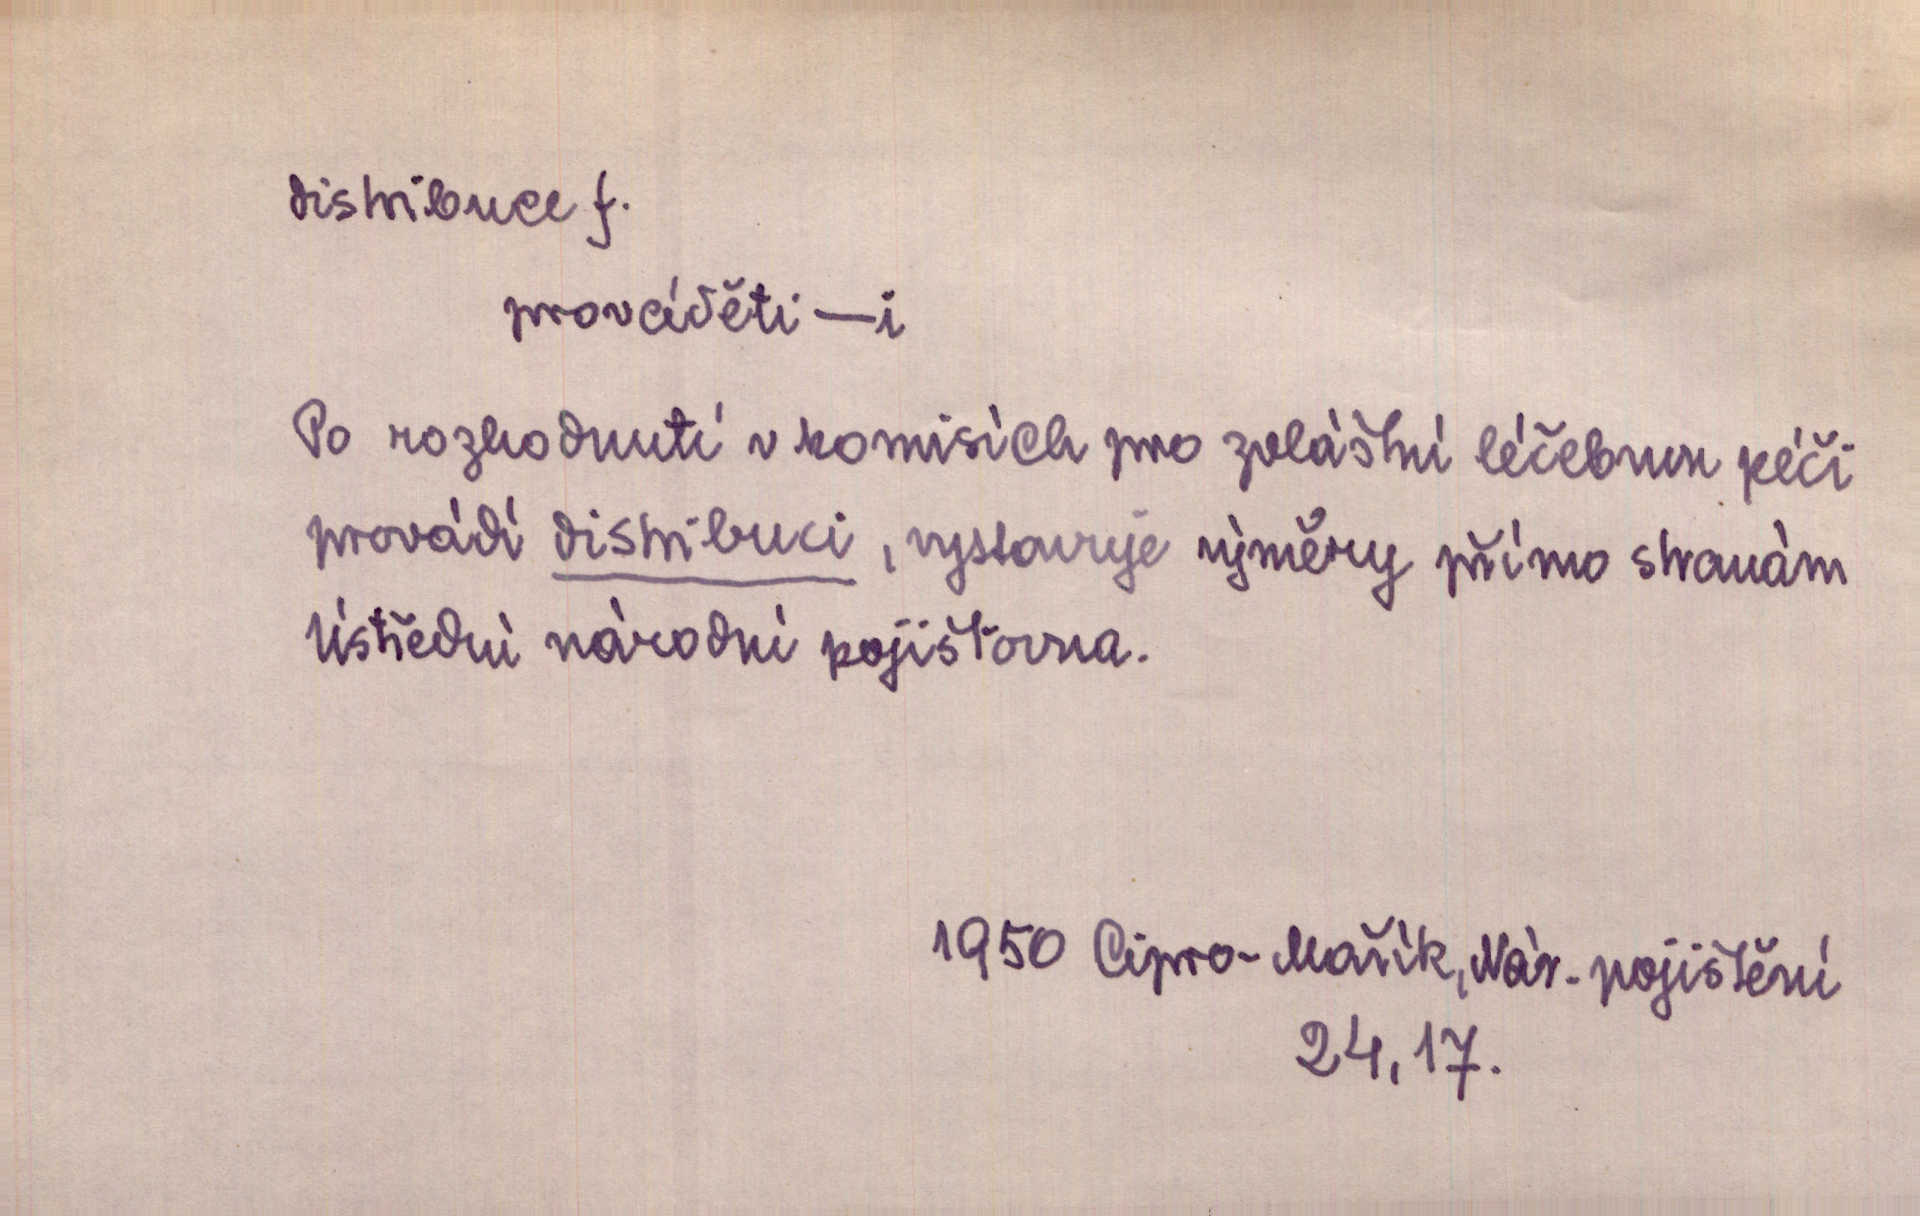 distribuce f.
prováděti —i
Po rozhodnutí v komisích pro zvláštní léčebnou péči
provádí distribuci, vystavuje výměry přímo stranám
Ústřední národní pojišťovna.
1950 Cipro-Mařík, Nár. pojištění
24, 17.